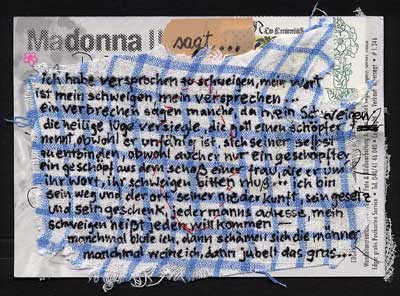 Madonna II
sagt...
ich habe versprochen zu schweigen, mein wort
ist mein schweigen, mein versprechen
ein verbrechen sagen manche, da mein schweigen
die heilige lüge versiegle, die gott einen schöpfer
nennt obwohl er unfähig ist, sich seiner selbst
zu entbinden, obwohl auch er nur ein geschöpf ist
ein geschöpf aus dem schoß einer frau, die er um
ihr wort, ihr schweigen bitten muß... ich bin
sein weg und der ort seiner niederkunft, sein gesetz
und sein geschenk, jedermanns adresse, mein
schweigen heißt jeden willkommen
manchmal blute ich, dann schämen sich die männer
manchmal weine ich, dann jubelt das gras...